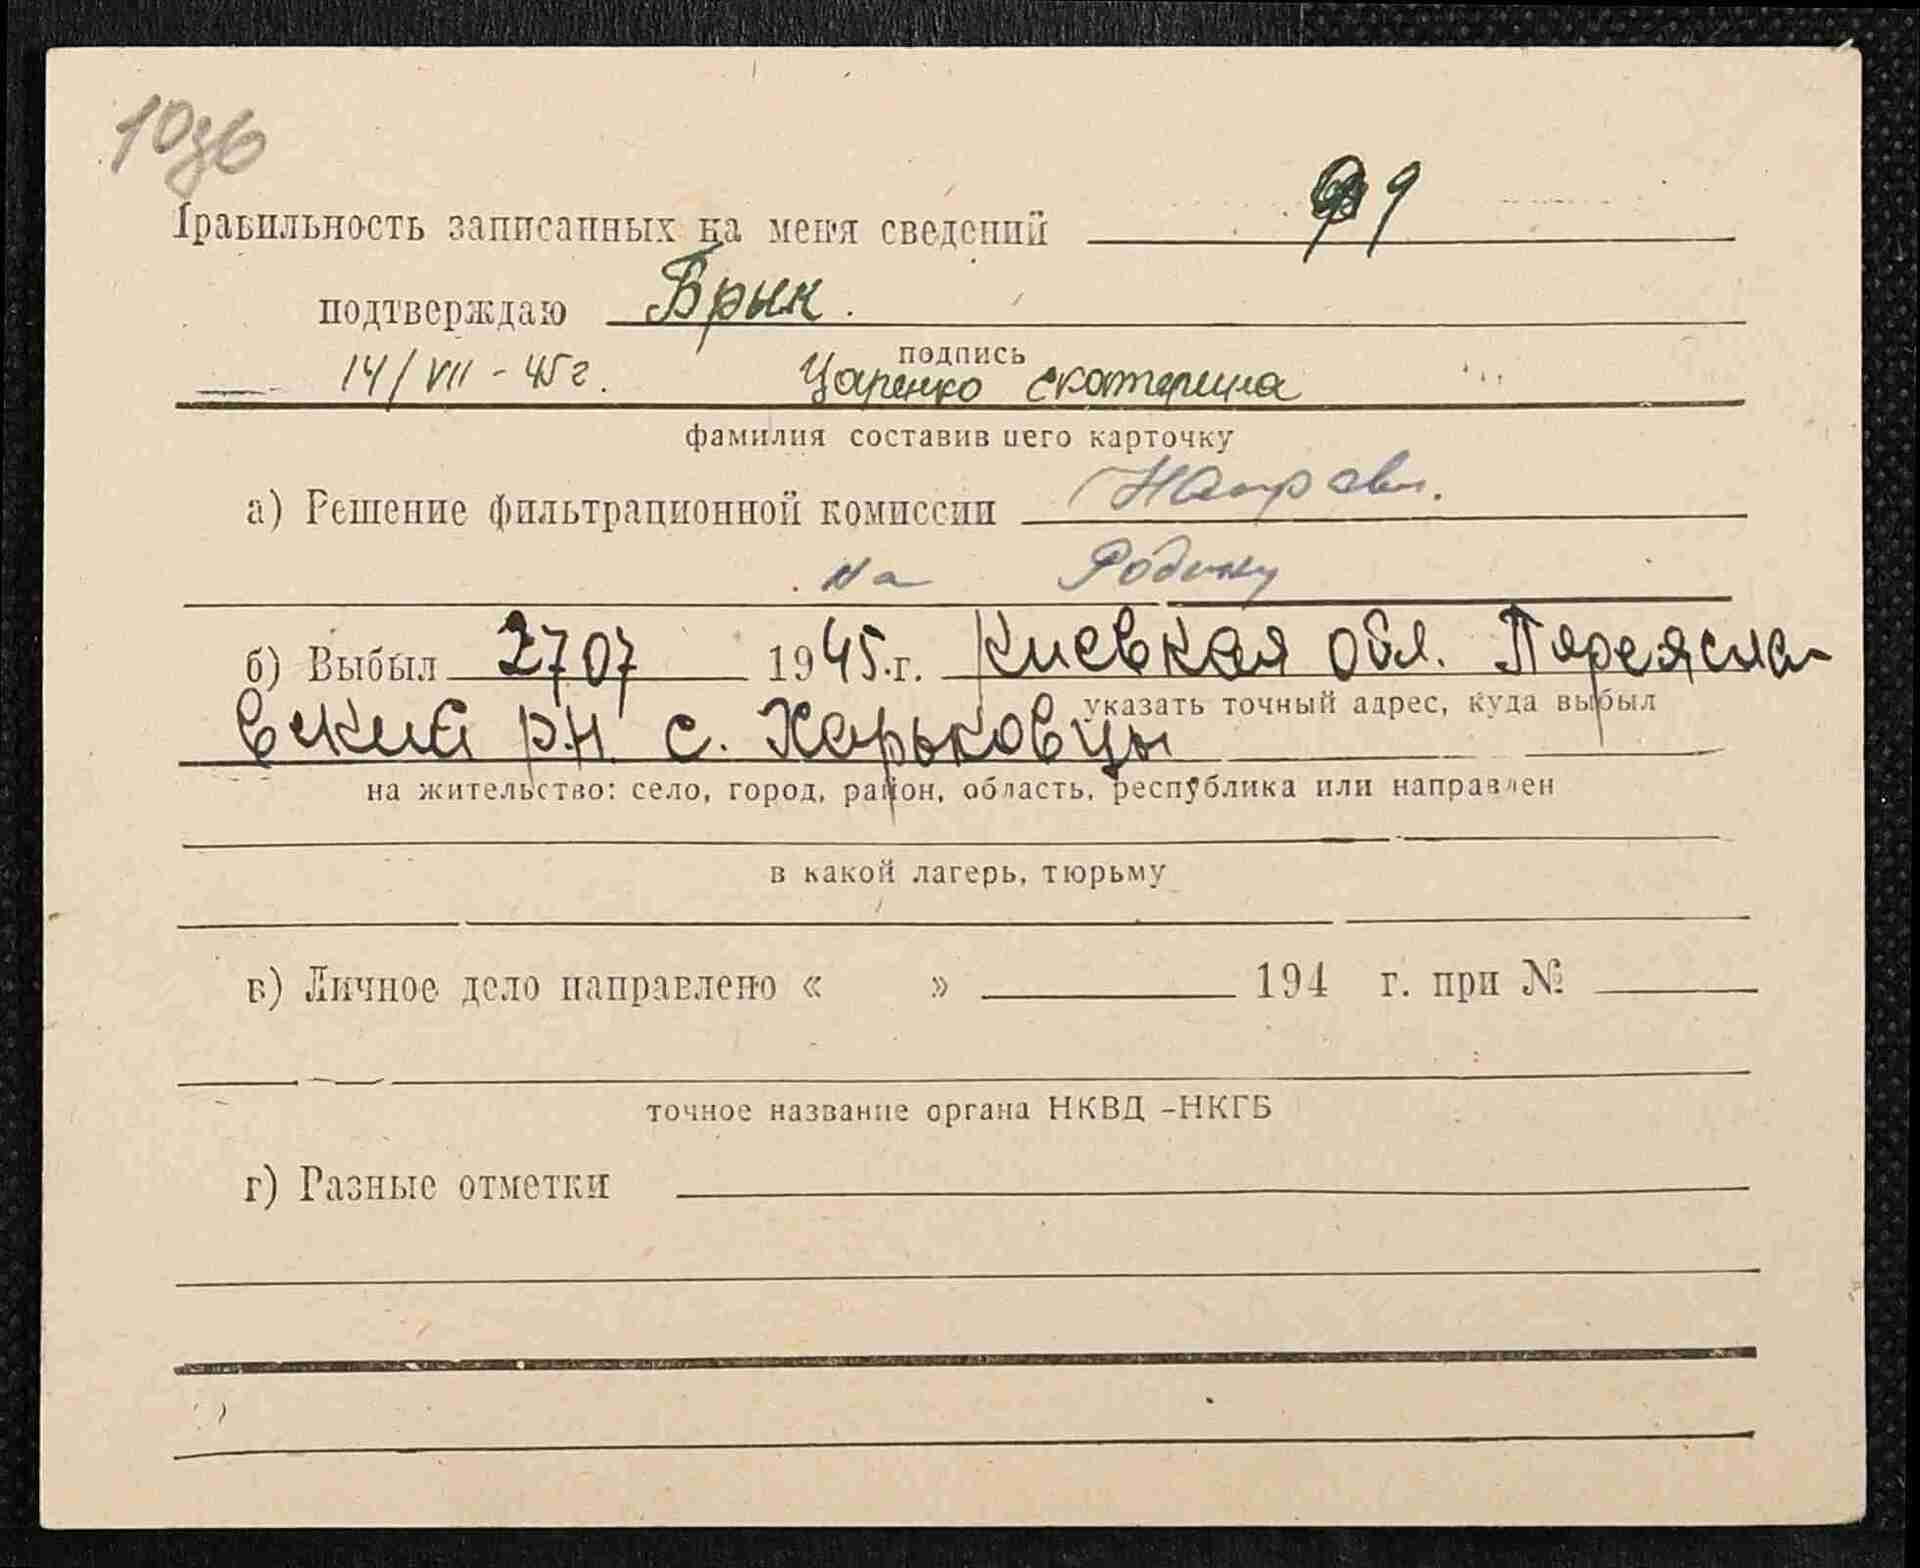 1036
Правильность записанных на меня сведений 9
подтверждаю Брык.
подпись
14/VII - 45 г. Царенко екатерина
фамилия составившего карточку
а) Решение фильтрационной комиссии Направл.
на Родину
б) Выбыл 27 07 1945.г. Киевкая обл. Пяреясла-
указать точный адрес, куда выбыл
вский р.н. с. Харьковцы
на жительство: село, город, район, область, республика или направлен
в какой лагерь, тюрьму
в) Личное дело направлено « » 194 г. при №
точное название органа НКВД -НКГБ
г) Разные отметки